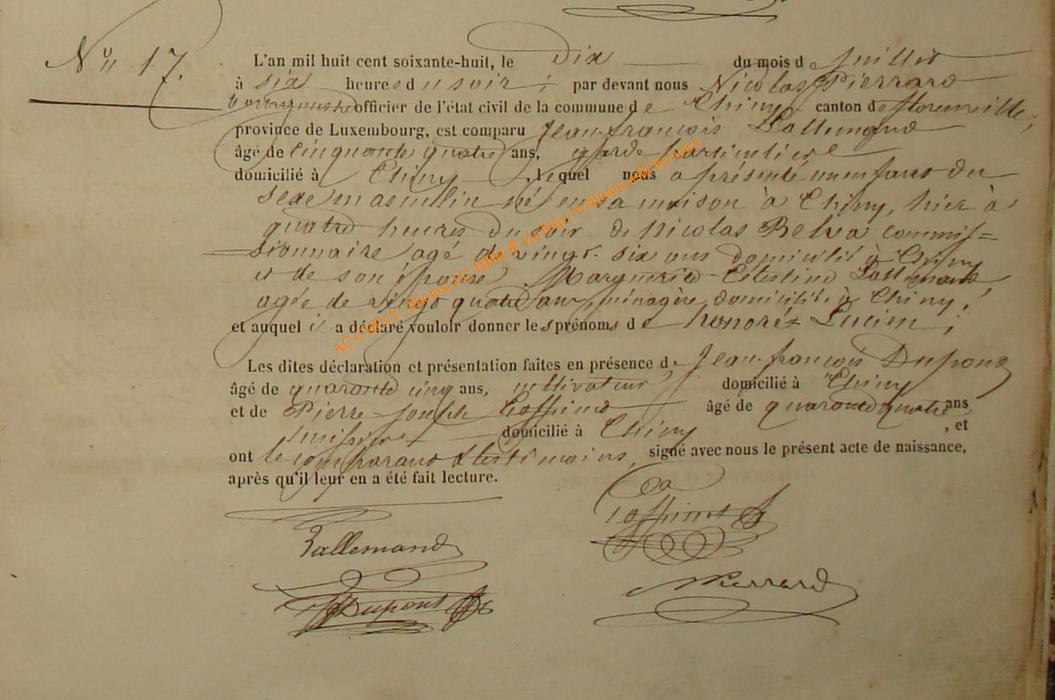 N° 17.
L'an mil huit cent soixante-huit, le Dix du mois de Juillet
à six heures du soir ; par devant nous Nicolas Pierrard
Bourgmestre officier de l'état civil de la commune de Chiny canton de florenville,
province de Luxembourg, est comparu Jean-françois Lallemand
âgé de cinquante quatre ans, garde particulier
domicilié à Chiny, lequel nous a présenté un enfant du
sexe masculin né en sa maison à Chiny, hier à
quatre heures du soir de Nicolas Belva commis=
=sionnaire agé de vingt-six ans domicilié à Chiny
et de son épouse Marguerite-Célestine Lallemand
agée de vingt quatre ans ménagère domicilié à Chiny,
et auquel il a déclaré vouloir donner les prénoms de honoréz Lucien ;
Les dites déclaration et présentation faites en présence de Jean-françois Dupont
âgé de quarante cinq ans, cultivateur domicilié à Chiny
et de Pierre-Joseph âgé de quarante quatre ans
domicilié à Chiny, et
ont le comparant & les témoins, signé avec nous le présent acte de naissance,
après qu'il leur en a été fait lecture.
Lallemand
Dupont
NPierrard